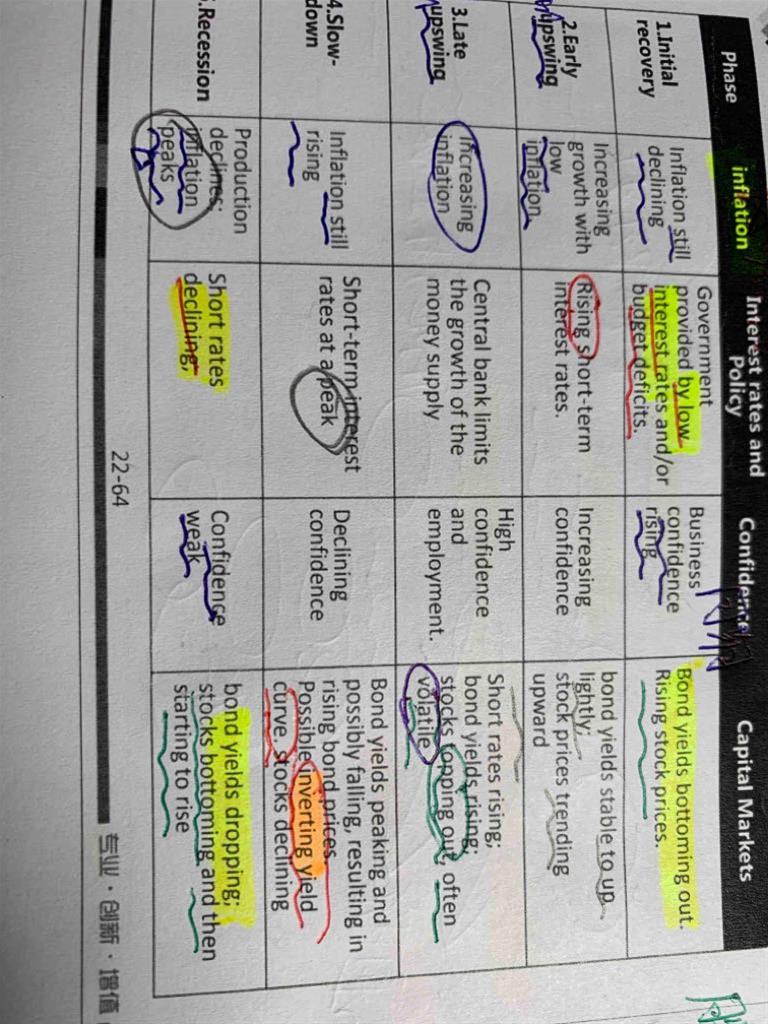 Phase
inflation
Interest rates and
Policy
Confidence
Capital Markets
1.Initial
recovery
Inflation still
declining
Government
provided by low
interest rates and/or
budget deficits.
Business
confidence
rising
Bond yields bottoming out.
Rising stock prices.
2.Early
upswing
Increasing
growth with
low
inflation.
Rising short-term
interest rates.
Increasing
confidence
bond yields stable to up
lightly;
stock prices trending
upward
3.Late
upswing
Increasing
inflation
Central bank limits
the growth of the
money supply
High
confidence
and
employment.
Short rates rising;
bond yields rising;
stocks topping out, often
volatile
4.Slow-
down
Inflation still
rising
Short-term interest
rates at a peak
Declining
confidence
Bond yields peaking and
possibly falling, resulting in
rising bond prices.
Possible inverting yield
curve, stocks declining
.Recession
Production
declines;
inflation
peaks
Short rates
declining,
Confidence
weak
bond yields dropping;
stocks bottoming and then
starting to rise
22-64
专业·创新·增值